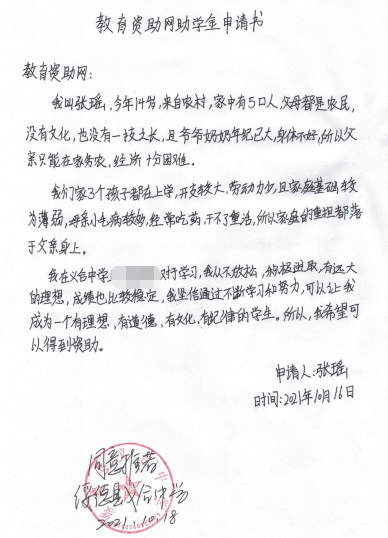 教育资助网助学金申请书
教育资助网:
我叫张瑶,今年14岁,来自农村,家中有5口人,父母都是农民,
没有文化,也没有一技之长,且爷爷奶奶年纪已大,身体不好,所以父
亲只能在家务农,经济十分困难。
我们家3个孩子都在上学,开支较大,劳动力少,且家庭基础较
为薄弱,母亲小毛病较多,经常吃药,干不了重活,所以家庭的重担都落
于父亲身上。
我在义合中学 对于学习,我从不放松,积极进取,有远大
的理想,成绩也比较稳定,我坚信通过不断学习和努力,可以让我
成为一个有理想,有道德,有文化,有纪律的学生。所以,我希望可
以得到资助。
申请人:张瑶
时间:2021年10月16日
同意推荐
绥德县义合中学
2021.10.18